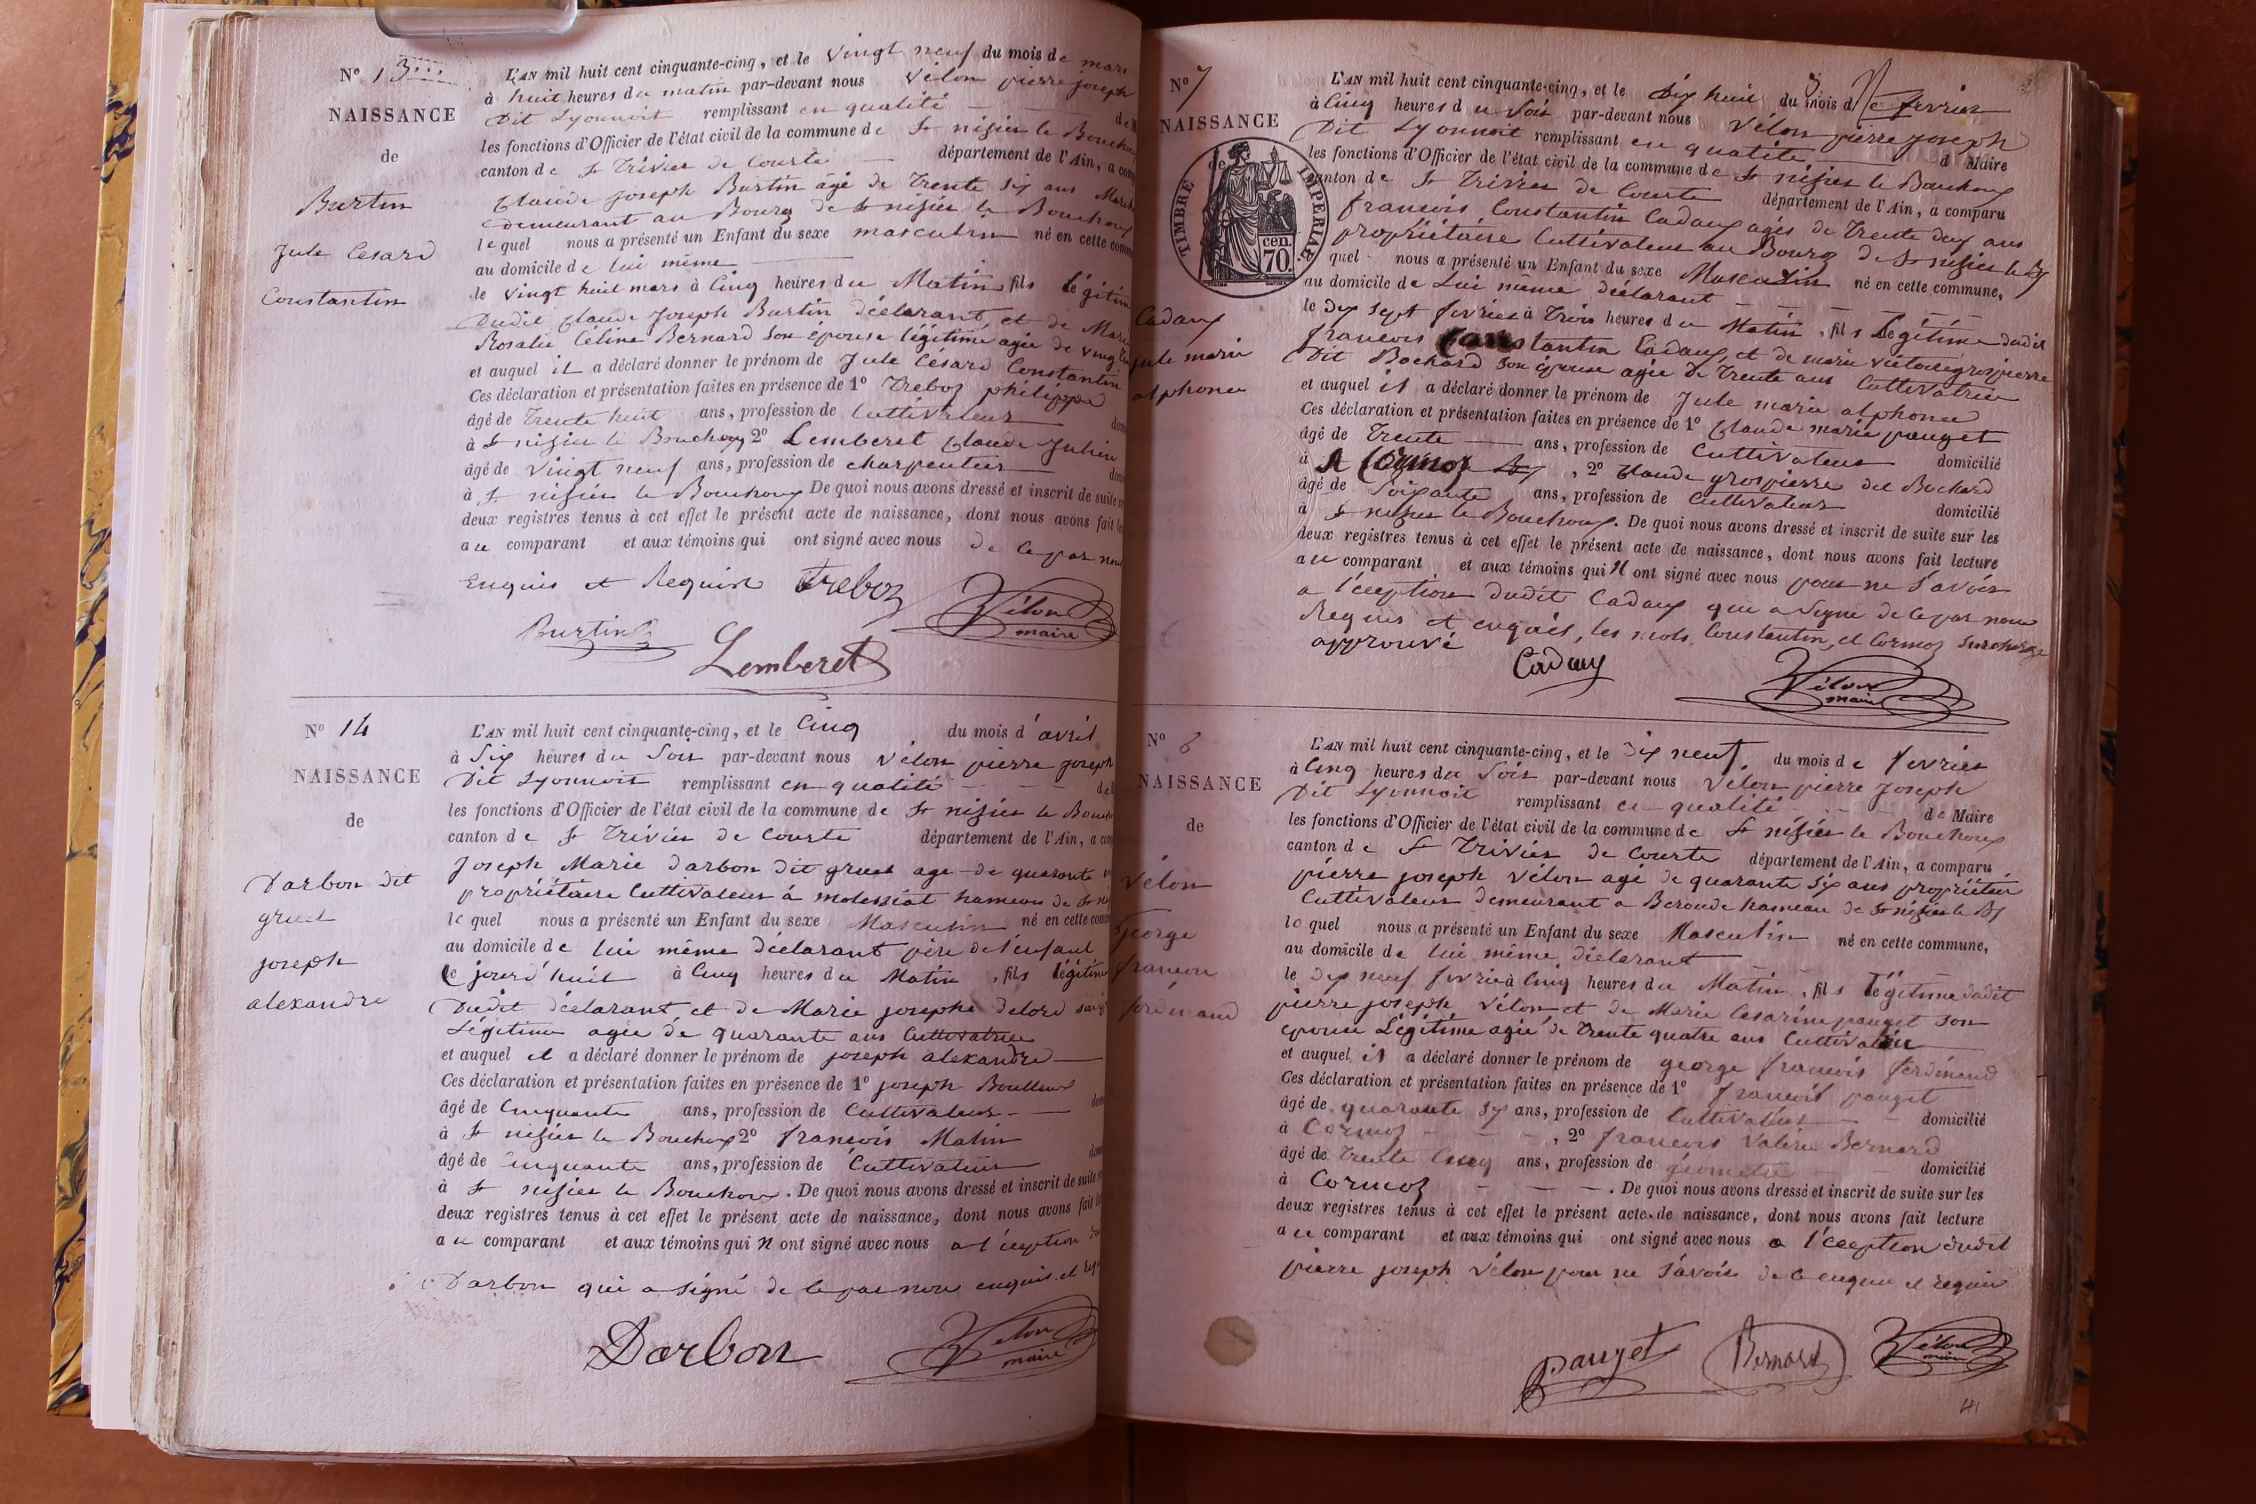 Nº 13
NAISSANCE
de
Burtin
Jule Cesard
Constantin
L'AN mil huit cent cinquante-cinq, et le vingt neuf du mois de mars
à huit heures du matin par-devant nous Vélon pierre joseph
Dit Lyonnoit remplissant en qualité
les fonctions d'Officier de l'état civil de la commune de St nisier le Bouchoux
canton de St Trivier de Courte département de l'Ain, a com
Claude joseph Burtin âgé de Trente six ans March
demeurant au Bourg de St nisier le Bouchoux
lequel nous a présenté un Enfant du sexe masculin né en cette comm
au domicile de lui même
le vingt huit mars à Cinq heures du Matin fils légitim
Dudit Claude joseph Burtin déclarant, et de Marie
Rosalie Céline Bernard son épouse légitime agée de vingt
et auquel il a déclaré donner le prénom de Jule César Constantin
Ces déclaration et présentation faites en présence de 1º Treboz philippe
âgé de Trente huit ans, profession de Cultivateur
à St nisier le Bouchoux 2º Lemberet Claude Julien
âgé de vingt neuf ans, profession de charpentier
à St nisier le Bouchoux De quoi nous avons dressé et inscrit de suite
deux registres tenus à cet effet le présent acte de naissance, dont nous avons fait
au comparant et aux témoins qui ont signé avec nous de ce par nous
Enquis et Requis Treboz
Vélon
maire
Burtin
Lemberet
Nº 14
NAISSANCE
de
Darbon dit
gruet
joseph
alexandre
L'AN mil huit cent cinquante-cinq, et le Cinq du mois d'avril
à Six heures du Soir par-devant nous Vélon pierre joseph
Dit Lyonnoit remplissant en qualité
les fonctions d'Officier de l'état civil de la commune de St nisier le Bouch
canton de St Trivier de Courte département de l'Ain, a com
Joseph Marie Darbon dit gruet agé de quarante
propriétaire Cultivateur à molessiat hameau de St
lequel nous a présenté un Enfant du sexe Masculin né en cette comm
au domicile de lui même déclarant père de l'enfant
le jourd'huit à Cinq heures du Matin, fils légitime
Dudit déclarant, et de Marie josephe delord
Légitime agée de quarante ans Cultivatrice
et auquel il a déclaré donner le prénom de joseph alexandre
Ces déclaration et présentation faites en présence de 1º joseph
âgé de Cinquante ans, profession de Cultivateur
à St nisier le Bouchoux 2º françois Matin
âgé de Cinquante ans, profession de Cultivateur
à St nisier le Bouchoux. De quoi nous avons dressé et inscrit de suite
deux registres tenus à cet effet le présent acte de naissance, dont nous avons fait
au comparant et aux témoins qui n ont signé avec nous a l'éception
Darbon qui a signé de ce par nous enquis et
Darbon
Vélon
maire
Nº 7
NAISSANCE
de
TIMBRE IMPERIAL
cen.
70.
Cadaux
jule marie
alphonse
L'AN mil huit cent cinquante-cinq, et le Dix huit du mois de fevrier
à Cinq heures du Soir par-devant nous Vélon pierre joseph
Dit Lyonnoit remplissant en qualité d Maire
les fonctions d'Officier de l'état civil de la commune de St nisier le Bouchoux
canton de St Trivier de Courte département de l'Ain, a comparu
françois Constantin Cadaux agés de Trente deux ans
propriétaire Cultivateur au Bourg de St nisier le Bx
quel nous a présenté un Enfant du sexe Masculin né en cette commune,
au domicile de Lui même déclarant
le dix sept fevrier à Trois heures du Matin, fils Légitime dudit
francois Constantin Cadaux, et de marie victoire grospierre
Dit Bochard son épouse agée de Trente ans Cultivatrice
et auquel il a déclaré donner le prénom de Jule marie alphonse
Ces déclaration et présentation faites en présence de 1º Claude marie pauget
âgé de Trente ans, profession de Cultivateur domicilié
à Cormoz, 2º Claude grospierre dit Bochard
âgé de Soixante ans, profession de Cultivateur domicilié
à St nisier le Bouchoux. De quoi nous avons dressé et inscrit de suite sur les
deux registres tenus à cet effet le présent acte de naissance, dont nous avons fait lecture
au comparant et aux témoins qui n ont signé avec nous pour ne Savoir
a l'éception dudit Cadaux qui a Signé de ce par nous
Requis et enquis, les mots Constantin, et Cormoz Surchargé
approuvé
Cadaux
Vélon
maire
Nº 8
NAISSANCE
de
Vélon
George
francois
ferdinand
L'AN mil huit cent cinquante-cinq, et le Dix neuf du mois de fevrier
à Cinq heures du Soir par-devant nous Vélon pierre joseph
Dit Lyonnoit remplissant en qualité de Maire
les fonctions d'Officier de l'état civil de la commune de St nisier le Bouchoux
canton de St Trivier de Courte département de l'Ain, a comparu
pierre joseph Vélon agé de quarante six ans propriétaire
Cultivateur demeurant a Beroude hameau de St nisier le Bx
lequel nous a présenté un Enfant du sexe Masculin né en cette commune,
au domicile de lui même déclarant
le dix neuf fevrier à Cinq heures du Matin, fils légitime dudit
pierre joseph Vélon et de Marie Cesarine pauget son
épouse Légitime agée de trente quatre ans Cultivatrice
et auquel il a déclaré donner le prénom de george francois ferdinand
Ces déclaration et présentation faites en présence de 1º francois pauget
âgé de quarante six ans, profession de Cultivateur domicilié
à Cormoz, 2º francois Valérie Bernard
âgé de trente Cinq ans, profession de géometre domicilié
à Cormoz. De quoi nous avons dressé et inscrit de suite sur les
deux registres tenus à cet effet le présent acte de naissance, dont nous avons fait lecture
au comparant et aux témoins qui ont signé avec nous a l'éception dudit
pierre joseph Vélon pour ne Savoir de ce enquis et requis
pauget
Bernard
Vélon
maire
41